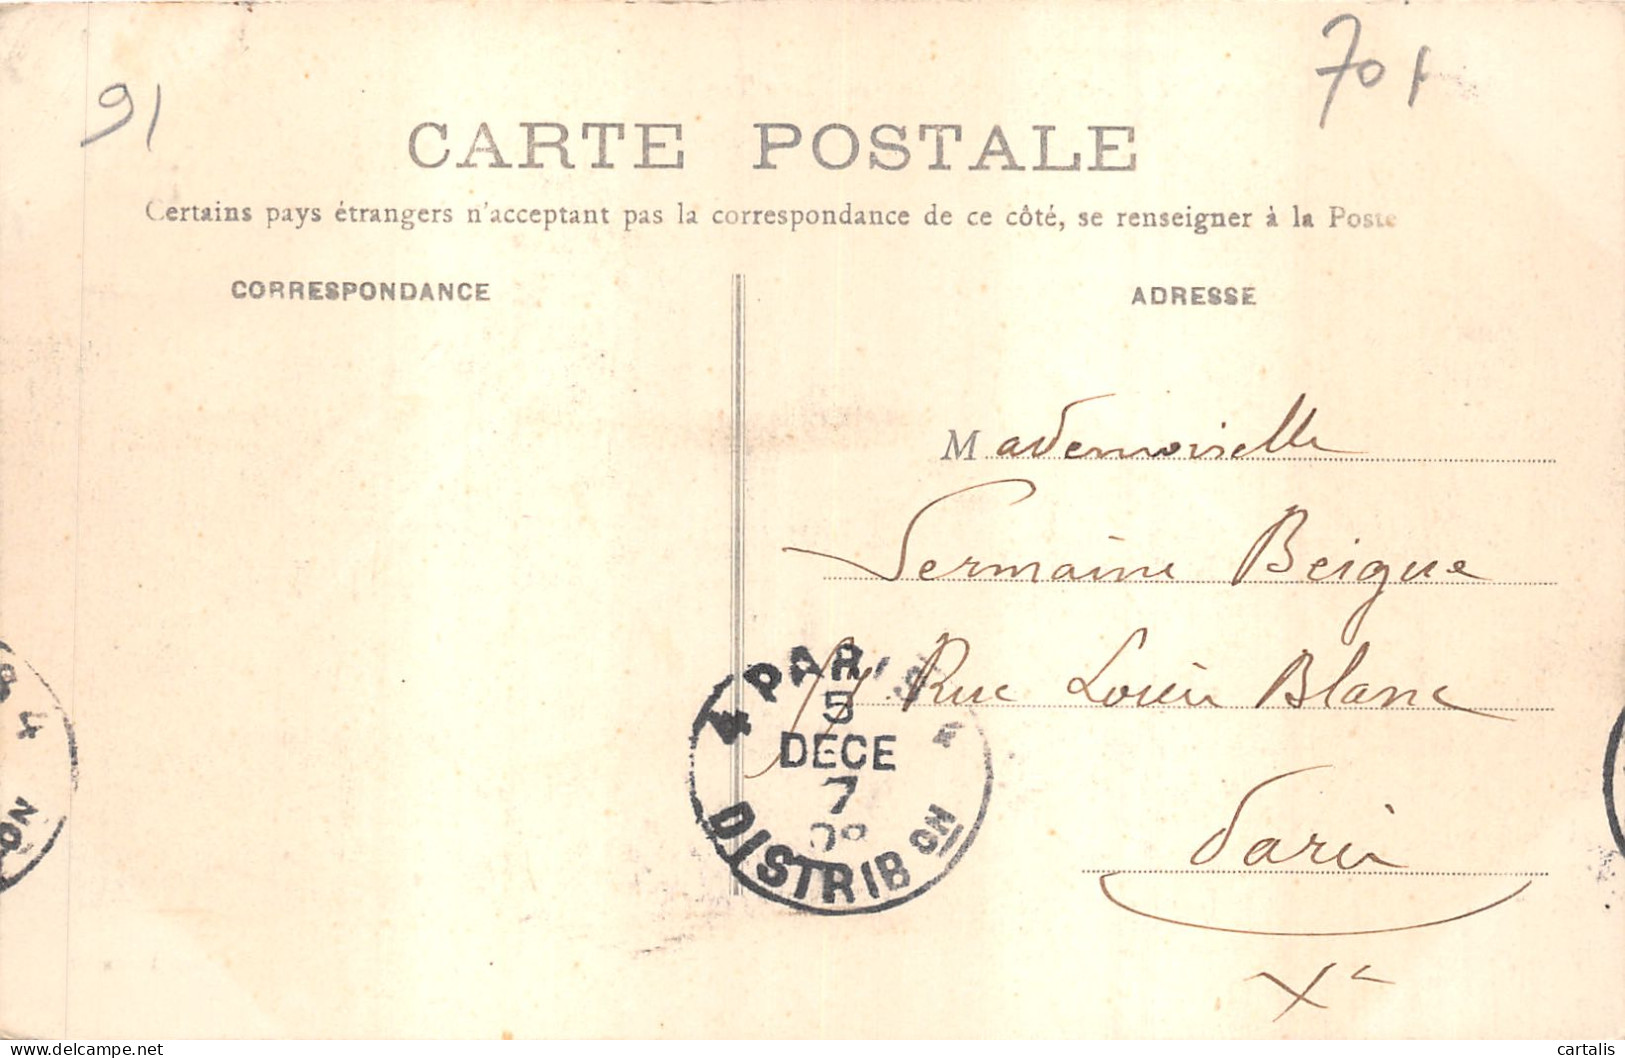 91
70f
CARTE POSTALE
Certains pays étrangers n'acceptant pas la correspondance de ce côté, se renseigner à la Poste
CORRESPONDANCE
ADRESSE
Mademoiselle
Germaine Beigue
Rue Louis Blanc
Paris
Xe
4 PARIS
5
DECE
7
08
DISTRIBON
4
delcampe.net
cartalis